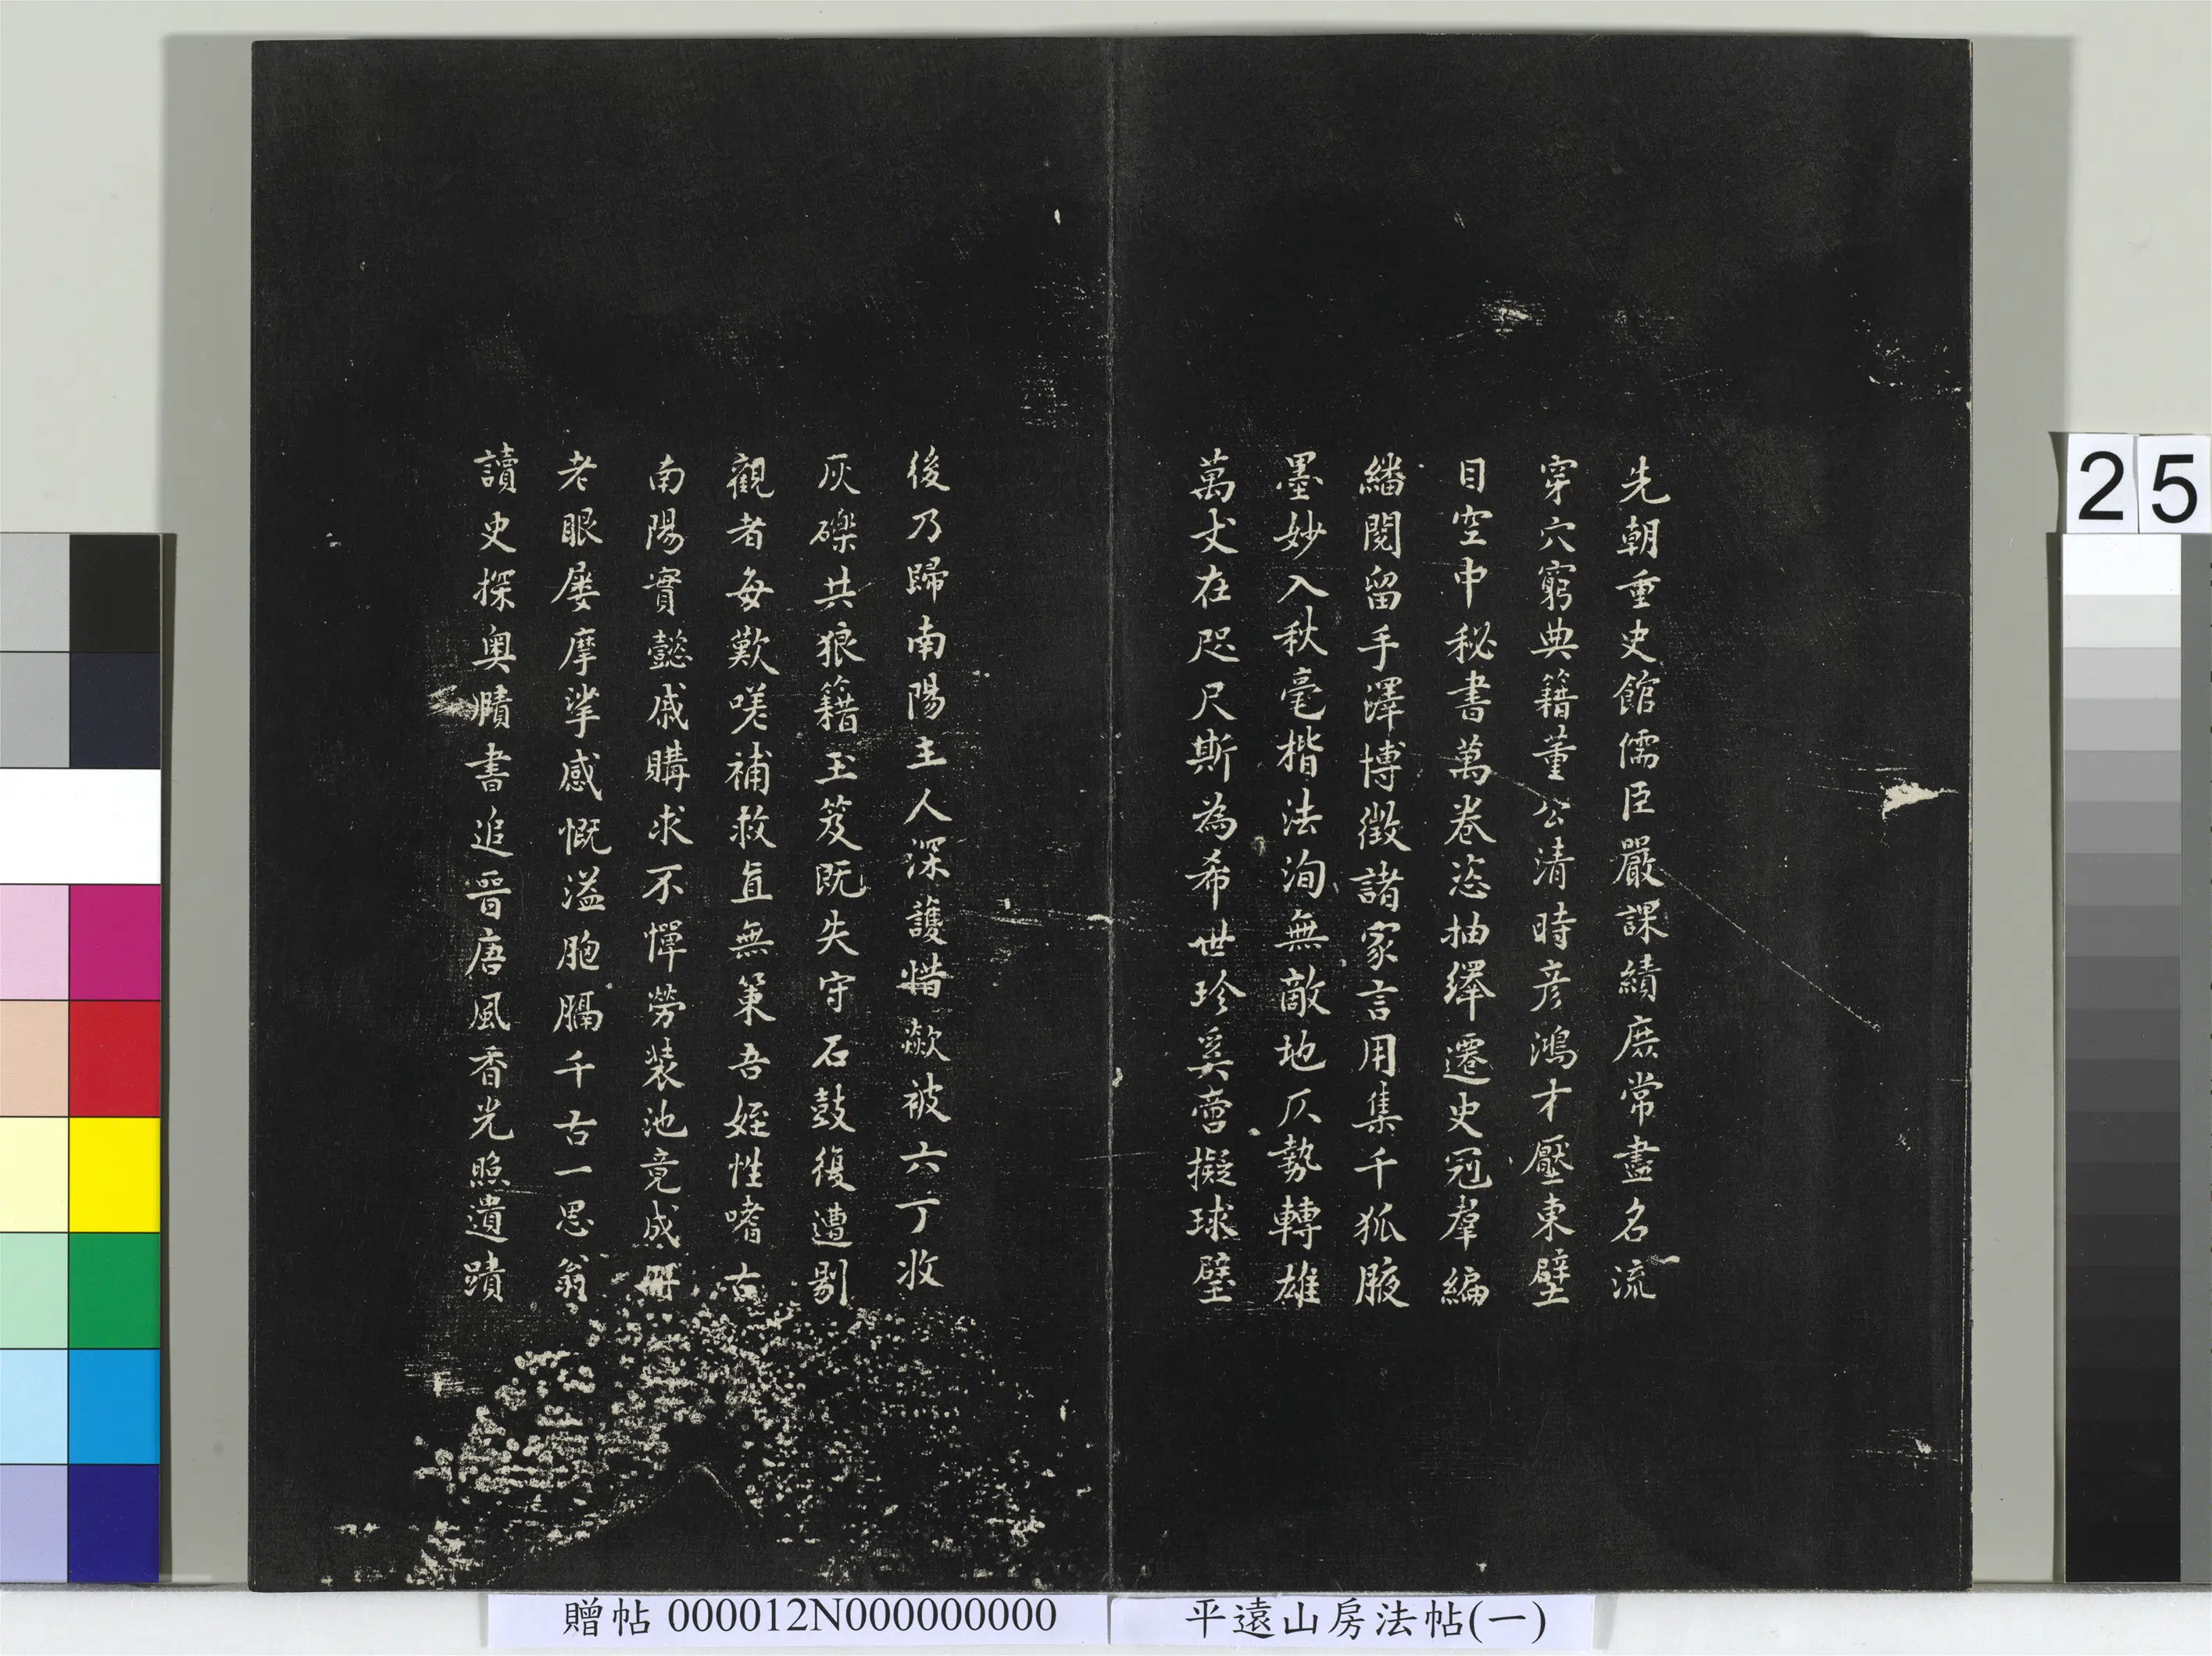 先朝重史館儒臣嚴課績庶常盡名流
穿穴窮典籍董公清時彦鴻才壓東壁
目空中秘書萬卷恣抽繹遷史冠羣編
繙閱留手澤博徵諸家言用集千狐腋
墨妙入秋毫楷法洵無敵地仄勢轉雄
萬丈在咫尺斯為希世珍奚啻擬球璧
後乃歸南陽主人深護惜歘被六丁收
灰礫共狼籍玉笈既失守石鼓復遭剔
觀者每歎嗟補救直無策吾姪性嗜古
南陽實懿戚購求不憚勞裝池竟成冊
老眼屡摩挲感慨溢胞膈千古一思翁
讀史探奥賾書追晋唐風香光照遺蹟
25
贈帖 000012N000000000
平遠山房法帖(一)